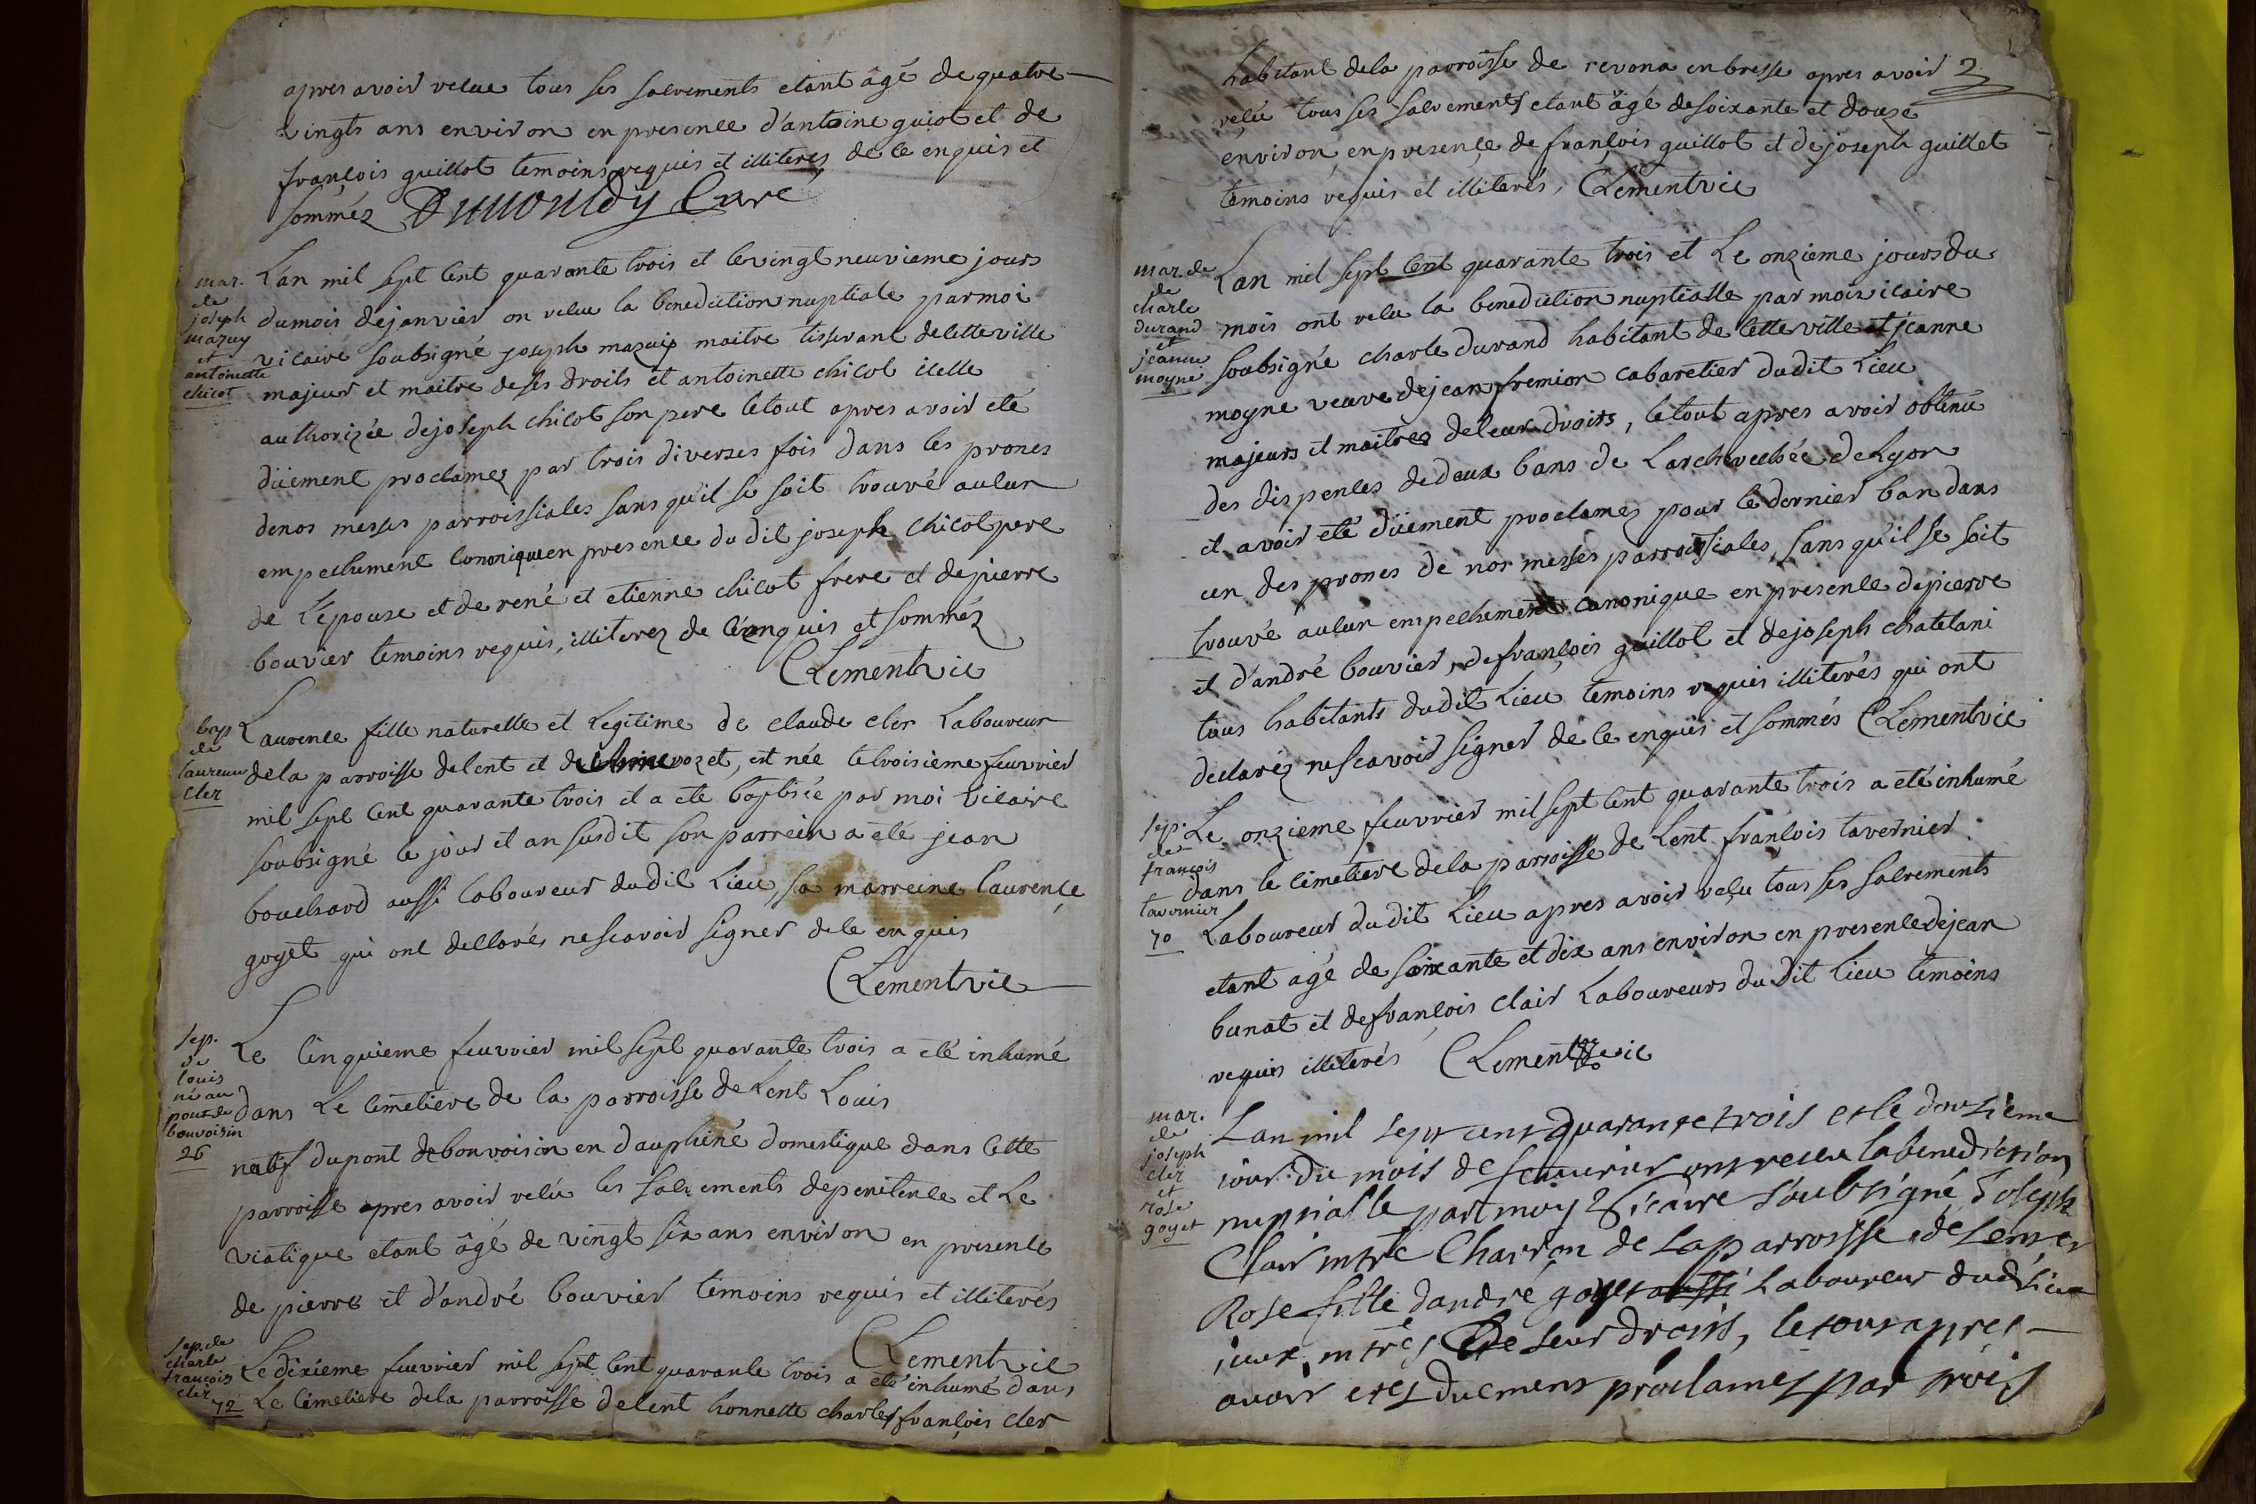 apres avoir recue tous ses sacrements etant âgé de quatre
vingts ans environ en presence d'antoine guiot et de
françois guillot temoins requis et illiteres de ce enquis et
sommés Dumouldy Curé
mar.
de
joseph
mazuy
et
antoinette
chicot
Lan mil sept cent quarante trois et le vingt neuvieme jours
dumois dejanvier on recue la benediction nuptiale parmoi
vicaire soubsigné joseph mazuy maitre tisserant decetteville
majeur et maitre deses droits et antoinette chicot icelle
authorizée dejoseph chicot son pere letout apres avoir eté
düement proclamez par trois diverses fois dans les prones
denos messes parroissiales sans qu'il se soit trouvé aucun
empechement cononique en presence dudit joseph chicot pere
de L'épouse et de rené et etienne chicot frere et depierre
bouvier temoins requis, illiterez de ce enquis et sommés
Clement vic
bap
de
laurence
cler
Laurence fille naturelle et Legitime de claude cler Laboureur
dela parroisse delent et de rozet, est née letroisieme feuvrier
mil sept cent quarante trois et a eté baptisée par moi vicaire
soubsigné le jour et an susdit son parrein a eté jean
bouchard aussi laboureur dudit Lieu, sa marreine laurence
goyet qui ont decllarés nescavoir signer dece enquis
Clement vic
sep.
de
louis
né au
pont de
bonvoisin
26
Le Cinquieme feuvrier mil sept quarante trois a eté inhumé
dans Le cimetiere de la parroisse de Lent Louis
natif dupont debonvoision en dauphiné domestique dans cette
parroisse apres avoir recû les sacrements depenitence et Le
viatique etant âgé de vingt six ans environ en presence
de pierre et d'andré bouvier temoins requis et illiterés
Clement vic
sep. de
charle
françois
cler
72
Le dixieme feuvrier mil sept cent quarante trois a eté inhumé dans
Le cimetiere dela parroisse delent honnette charles françois cler
2
habitant dela parroisse de revona enbresse apres avoir
reçu tous ses sacrements etant âgé desoixante et douze
environ enpresence de françois guillot et dejoseph guillet
temoins requis et illiterés, Clement vic
mar. de
de
charle
durand
et
jeanne
moyne
Lan mil sept cent quarante trois et Le onzieme joursdu
mois ont recu la benediction nuptialle par moi vicaire
soubsigné charle durand habitant de cette ville et jeanne
moyne veuve dejean fremion cabaretier dudit Lieu
majeurs et maitres deleur droits, letout apres avoir obtenu
des dispences dedeux bans de Larchevechée deLyon
et avoir eté düement proclamez pour le dernier ban dans
un des prones de nos messes parroissiales, sans qu'il se soit
trouvé aucun empechement canonique en presence depierre
et d'andré bouvier, defrançois guillot et dejoseph chatelani
tous habitants dudit Lieu temoins requis illiterés qui ont
declarez nescavoir signer de ce enquis et sommés Clement vic
sep.
de
françois
tavernier
70
Le onzieme feuvrier mil sept cent quarante trois a eté inhumé
dans le cimetiere dela parroisse de Lent françois tavernier
Laboureur dudit Lieu apres avoir reçu tous ses sacrements
etant agé de soixante et dix ans environ en presence dejean
bunat et defrançois clair Laboureurs dudit Lieu temoins
requis illiterés Clement vic
mar.
de
joseph
cler
et
rose
goyet
Lan mil sept cent quarante trois et le douzieme
iour du mois de feuurier ont receu la benediction
nuptialle part moy Vicaire soubsigné, Joseph
Clair mtre Charron de La parroisse de Lent et
Rose fille dandré goyet aussi Laboureur dud Lieu
iceux mtres de leur droits, letout apres
avoir etez duement proclamez par trois